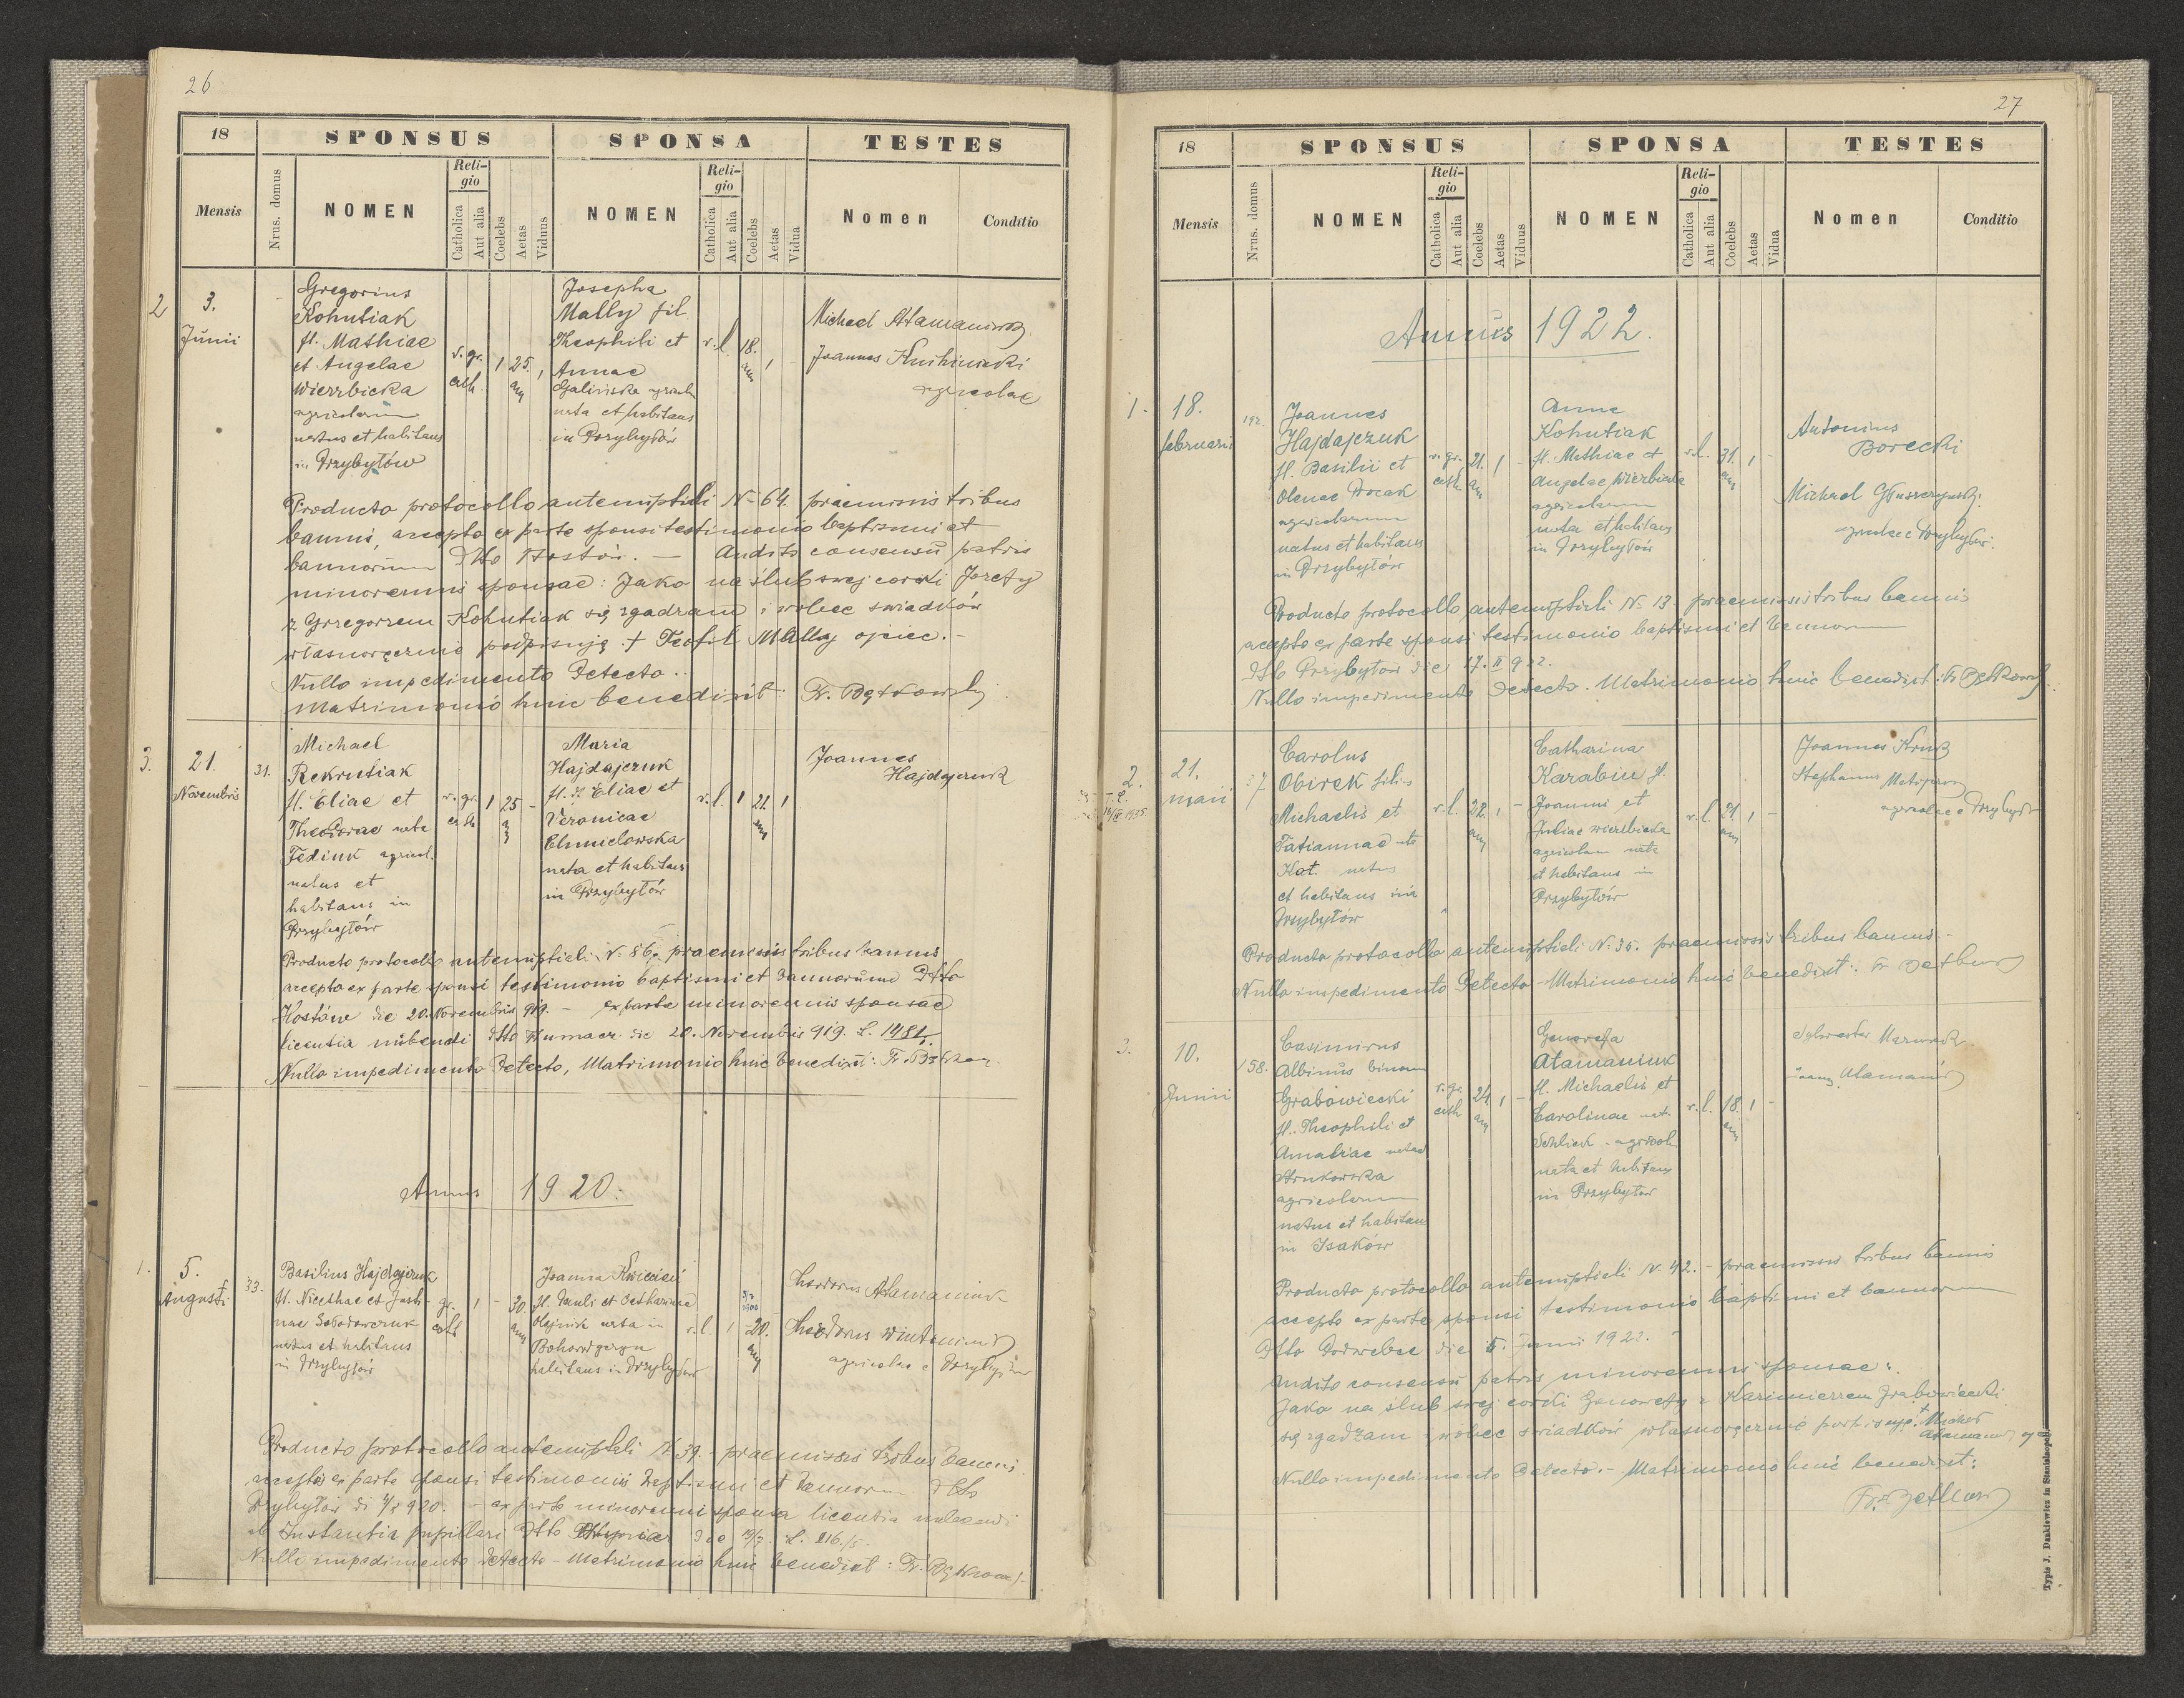 26
18
SPONSUS
SPONSA
TESTES
Mensis
Nrus. domus
NOMEN
Religio
Catholica
Aut alia
Coelebs
Aetas
Viduus
NOMEN
Religio
Catholica
Aut alia
Coelebs
Aetas
Vidua
Nomen
Conditio
2
3.
Junii
Gregorius
Kohutiak
fl. Mathiae
et Angelae
Wierzbicka
agricolarum
natus et habitans
in Przybyłów
r. gr.
cath.
1
25.
Josepha
Mally fil.
Theophili et
Annae
Galińska
nata et habitans
in Przybyłów
r. l.
18.
1
Michael
Joannes
agricolae
Producto protocollo antenuptiali N-64. praemissis tribus
bannis, accepto ex parte sponsi testimonio baptismi et
bannorum Dtto . — Audito consensu patris
minorennis sponsae: Jako na ślub swej córki Józefy
z Grzegorzem Kohutiak się zgadzam i wobec świadków
własnoręcznie podpisuję + Teofil Mally ojciec. -
Nullo impedimento detecto..
Matrimonio huic benedixit: Fr.
3.
21.
Novembris
31.
Michael
Rekrutiak
fl. Eliae et
Theodorae nata
Fediuk agricol.
natus et
habitans in
Przybyłów
r. gr.
cath
1
25
-
Maria
Hajdajczuk
fl. Eliae et
Veronicae
Chmielowska
nata et habitans
in Przybyłów
r. l.
1
21.
1
Joannes
Hajdajczuk
Producto protocollo antenuptiali N. 86, praemissis tribus bannis
accepto ex parte sponsi testimonio baptismi et bannorum Dtto
die 20. Novembris 919. - ex parte minorennis sponsae
licentia nubendi dtto Tłumacz die 20. Novembris 919. L.
Nullo impedimento detecto, Matrimonio huic benedixit: Fr.
Annus 1920.
1.
5.
Augusti
33.
Basilius Hajdajczuk
fl. Nicethae et Justi-
nae
natus et habitans
in Przybyłów
gr.
cath
1
-
30.
Joanna Kwiecień
fl. Pauli et Catharinae
Olejnik nata in
habitans in Przybyłów
r. l.
1
20.
Theodorus Atamaniuk
Theodorus
agricolae e Przybyłów
Producto protocollo antenuptiali N. 39. - praemissis tribus bannis
accepto ex parte sponsi testimonio baptismi et bannorum dtto
Przybyłów 920. - ex parte minorenni sponsa licentia nubendi
ab Instantia pupillari dtto die 19/7. L. 216./5.
Nullo impedimento detecto - Matrimonio huic benedixit: Fr.
27
18
SPONSUS
SPONSA
TESTES
Mensis
Nrus. domus
NOMEN
Religio
Catholica
Aut alia
Coelebs
Aetas
Viduus
NOMEN
Religio
Catholica
Aut alia
Coelebs
Aetas
Vidua
Nomen
Conditio
Annus 1922.
1.
18.
februarii
192.
Joannes
Hajdajczuk
fl. Basilii et
Olenae
agricolarum
natus et habitans
in Przybyłów
r. gr.
cath
21.
1
-
Anna
Kohutiak
fl. Mathiae et
Angelae Wierzbicka
agricolarum
nata et habitans
in Przybyłów
r. l.
31.
1
-
Antonius
Borecki
Michael
agricolae e Przybyłów.
Producto protocollo antenuptiali N. 13. praemissis tribus bannis
accepto ex parte sponsi testimonio baptismi et bannorum
dtto Przybyłów die 17. II 922.
Nullo impedimento detecto. Matrimonio huic benedixit: Fr
2.
21.
maii
37
Carolus
Obirek filius
Michaelis et
Tatiannae nata
Kot. natus
et habitans in
Przybyłów
r. l.
28.
1
-
Catharina
Karabin fl.
Joannis et
Juliae Wierzbicka
agricolarum nata
et habitans in
Przybyłów
r. l.
21.
1
-
Joannes
Stephanus
agricolae e Przybyłów
Producto protocollo antenuptiali N. 35. praemissis tribus bannis. -
Nullo impedimento detecto - Matrimonio huic benedixit: Fr
3.
10.
Junii
158.
Casimirus
Albinus binom
Grabowiecki
fl. Theophili et
Amaliae natae
agricolarum
natus et habitans
in Isaków
r. gr.
cath
24.
1
-
Genovefa
Atamaniuk
fl. Michaelis et
Carolinae nat.
nata et habitans
in Przybyłów
r. l.
18.
1
-
Sylvester
Atamaniuk
Producto protocollo antenuptiali N. 42. - praemissis tribus bannis
accepto ex parte sponsi testimonio baptismi et bannorum
Dtto die 5. Junii 1922. -
Audito consensu patris minorennis sponsae:
Jako na ślub swej córki Genowefy z Kazimierzem Grabowiecki
się zgadzam i wobec świadków własnoręcznie podpisuję. + Michał
Atamaniuk
Nullo impedimento detecto. - Matrimonio huic benedixit:
Fr.
Typis J. Dankiewicz in Stanislaopoli